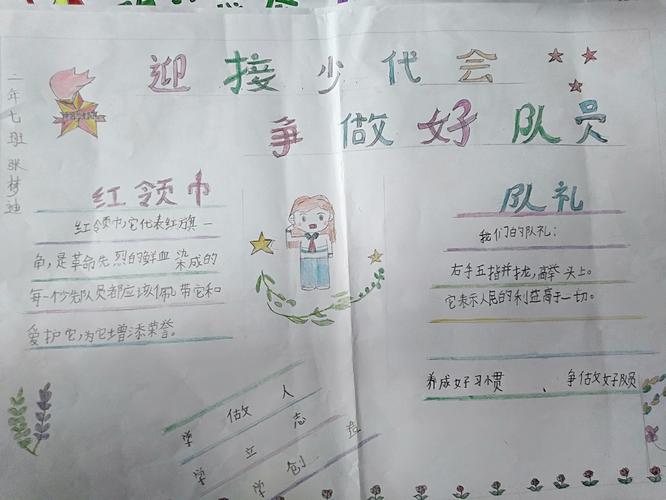 迎接少代会
争做好队员
二年七班 张梦迪
红领巾
红领巾,它代表红旗一
角,是革命先烈的鲜血染成的
每一个少先队员都应该佩带它和
爱护它,为它增添荣誉。
队礼
我们的队礼:
右手五指并拢,高举头上。
它表示人民的利益高于一切。
养成好习惯、争做好队员
学做人
学立志
学创造